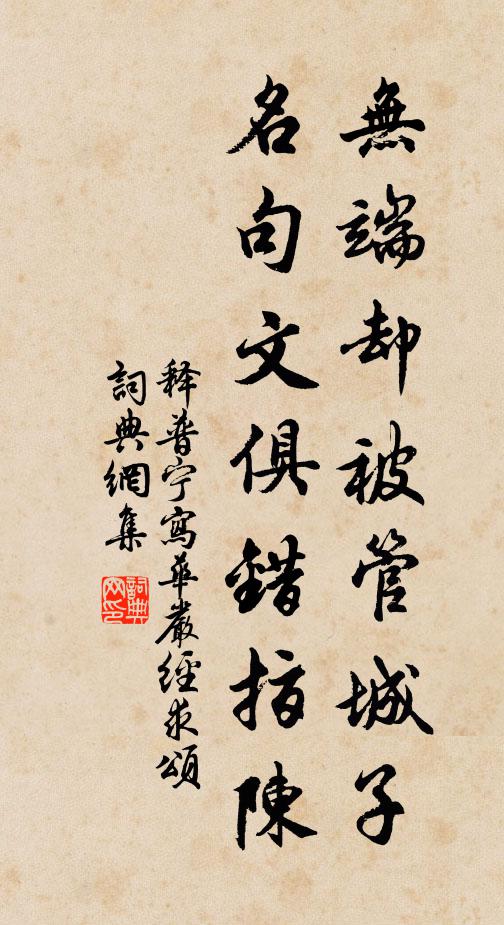 無端却被管城子
名句文俱錯指陳
释普宁寫華嚴經求頌
詞典網集
詞典网印